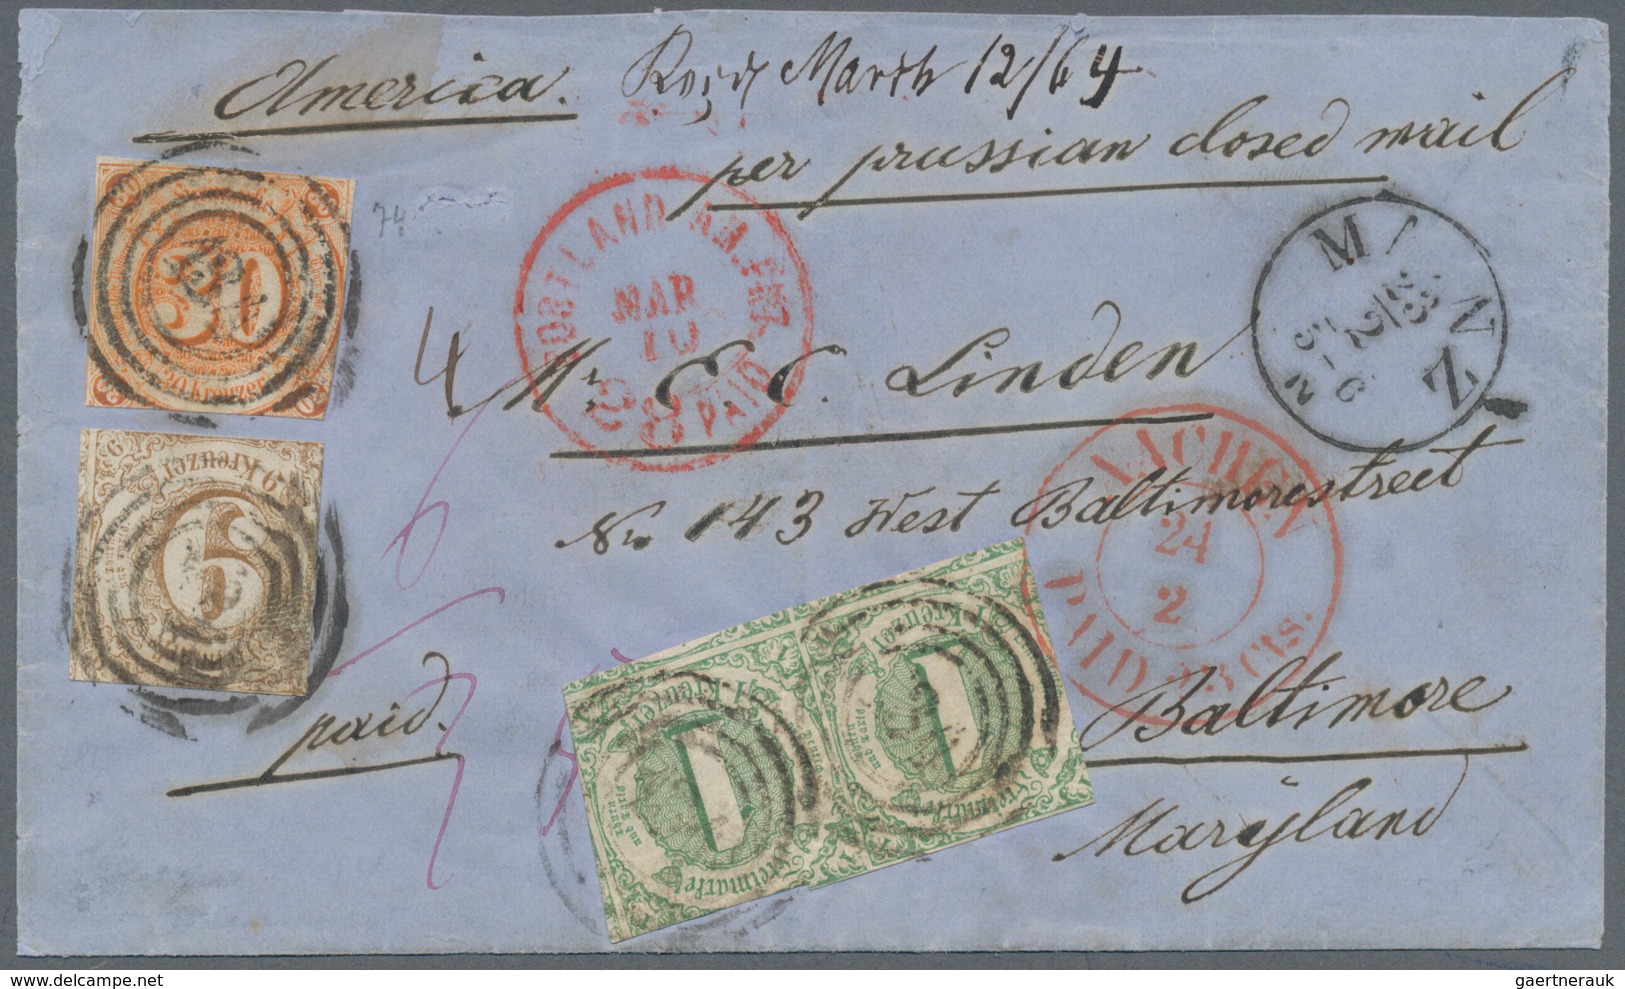 America. Rec'd March 12/64
per prussian closed mail
PORTLAND AM. PKT
MAR
10
28
PAID
MAINZ
23/2
5-6
30
30 Kreuzer
4
Mr. C. C. Linden
AACHEN
24
2
PAID 23 Cts.
6 Kreuzer
6
Freimarke
No. 143 West Baltimorestreet
1 Kreuzer
1
Freimarke
1 Kreuzer
1
Freimarke
paid.
Baltimore
Maryland
gaertnerauk